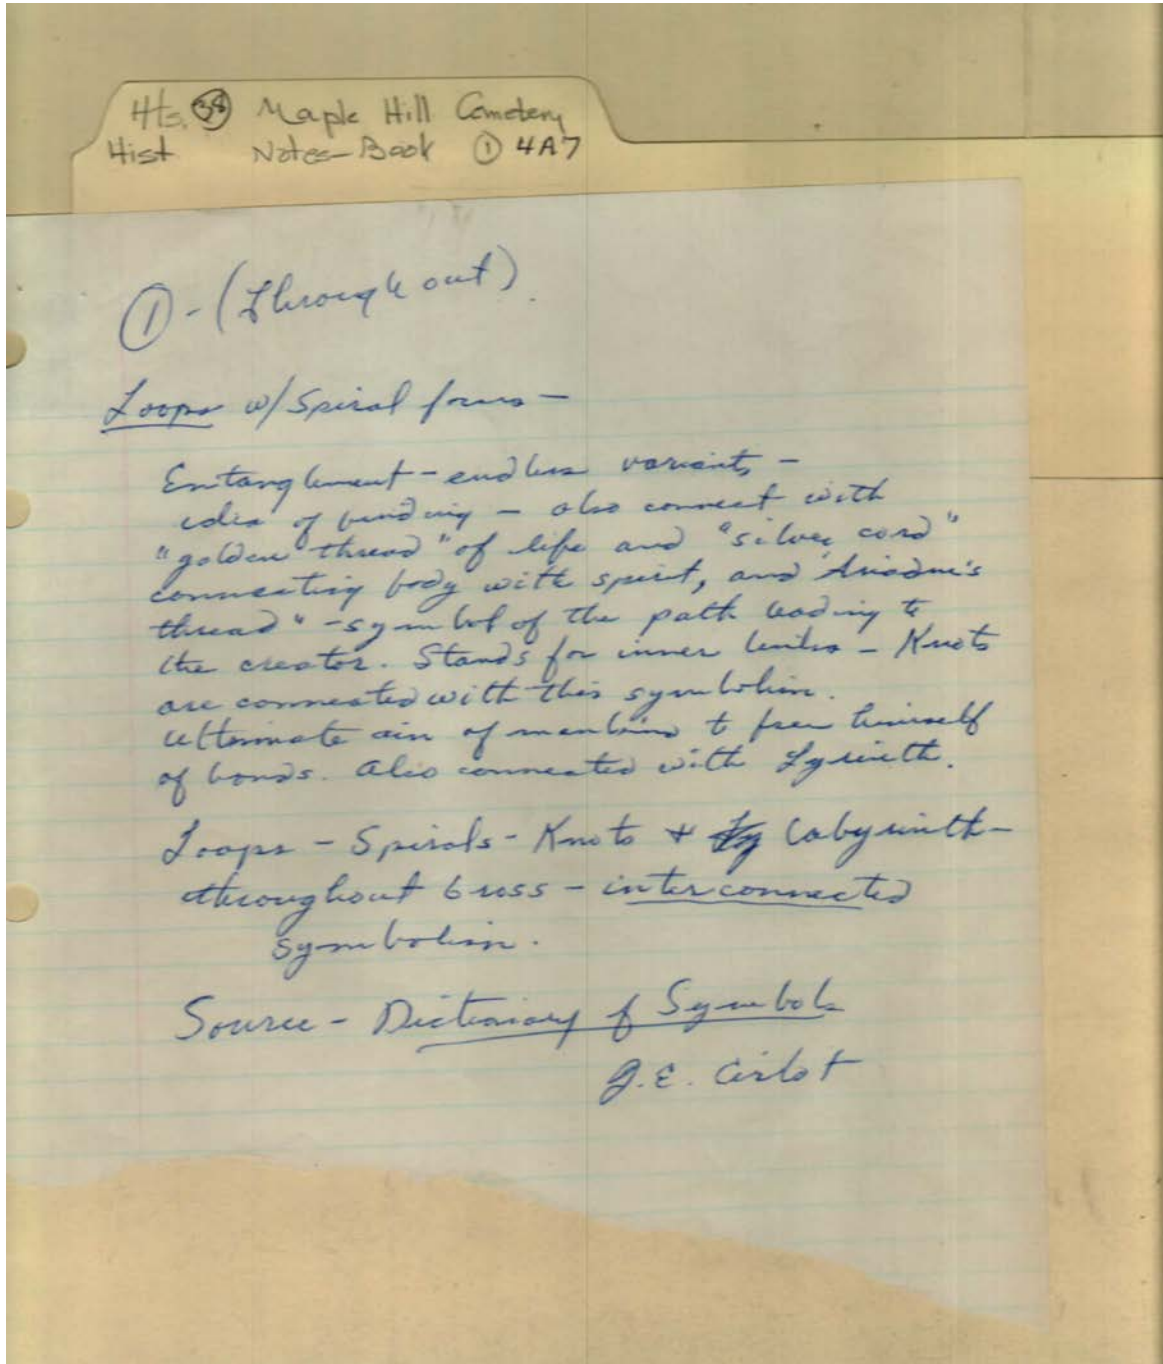 Hts. 38 Maple Hill Cemetery
Hist Notes-Book ① 4A7
① - (Throughout)
Loops w/ Spiral forms -
Entanglement - endless variants -
idea of binding - also connect with
"golden thread" of life and "silver cord"
connecting body with spirit, and "Ariadne's
thread" - symbol of the path leading to
the creator. Stands for inner links - Knots
are connected with this symbolism.
Ultimate aim of mankind to free himself
of bonds. Also connected with
Loops - Spirals - Knots + Labyrinth -
throughout cross - interconnected
symbolism.
Source - Dictionary of Symbols
J.E. Cirlot